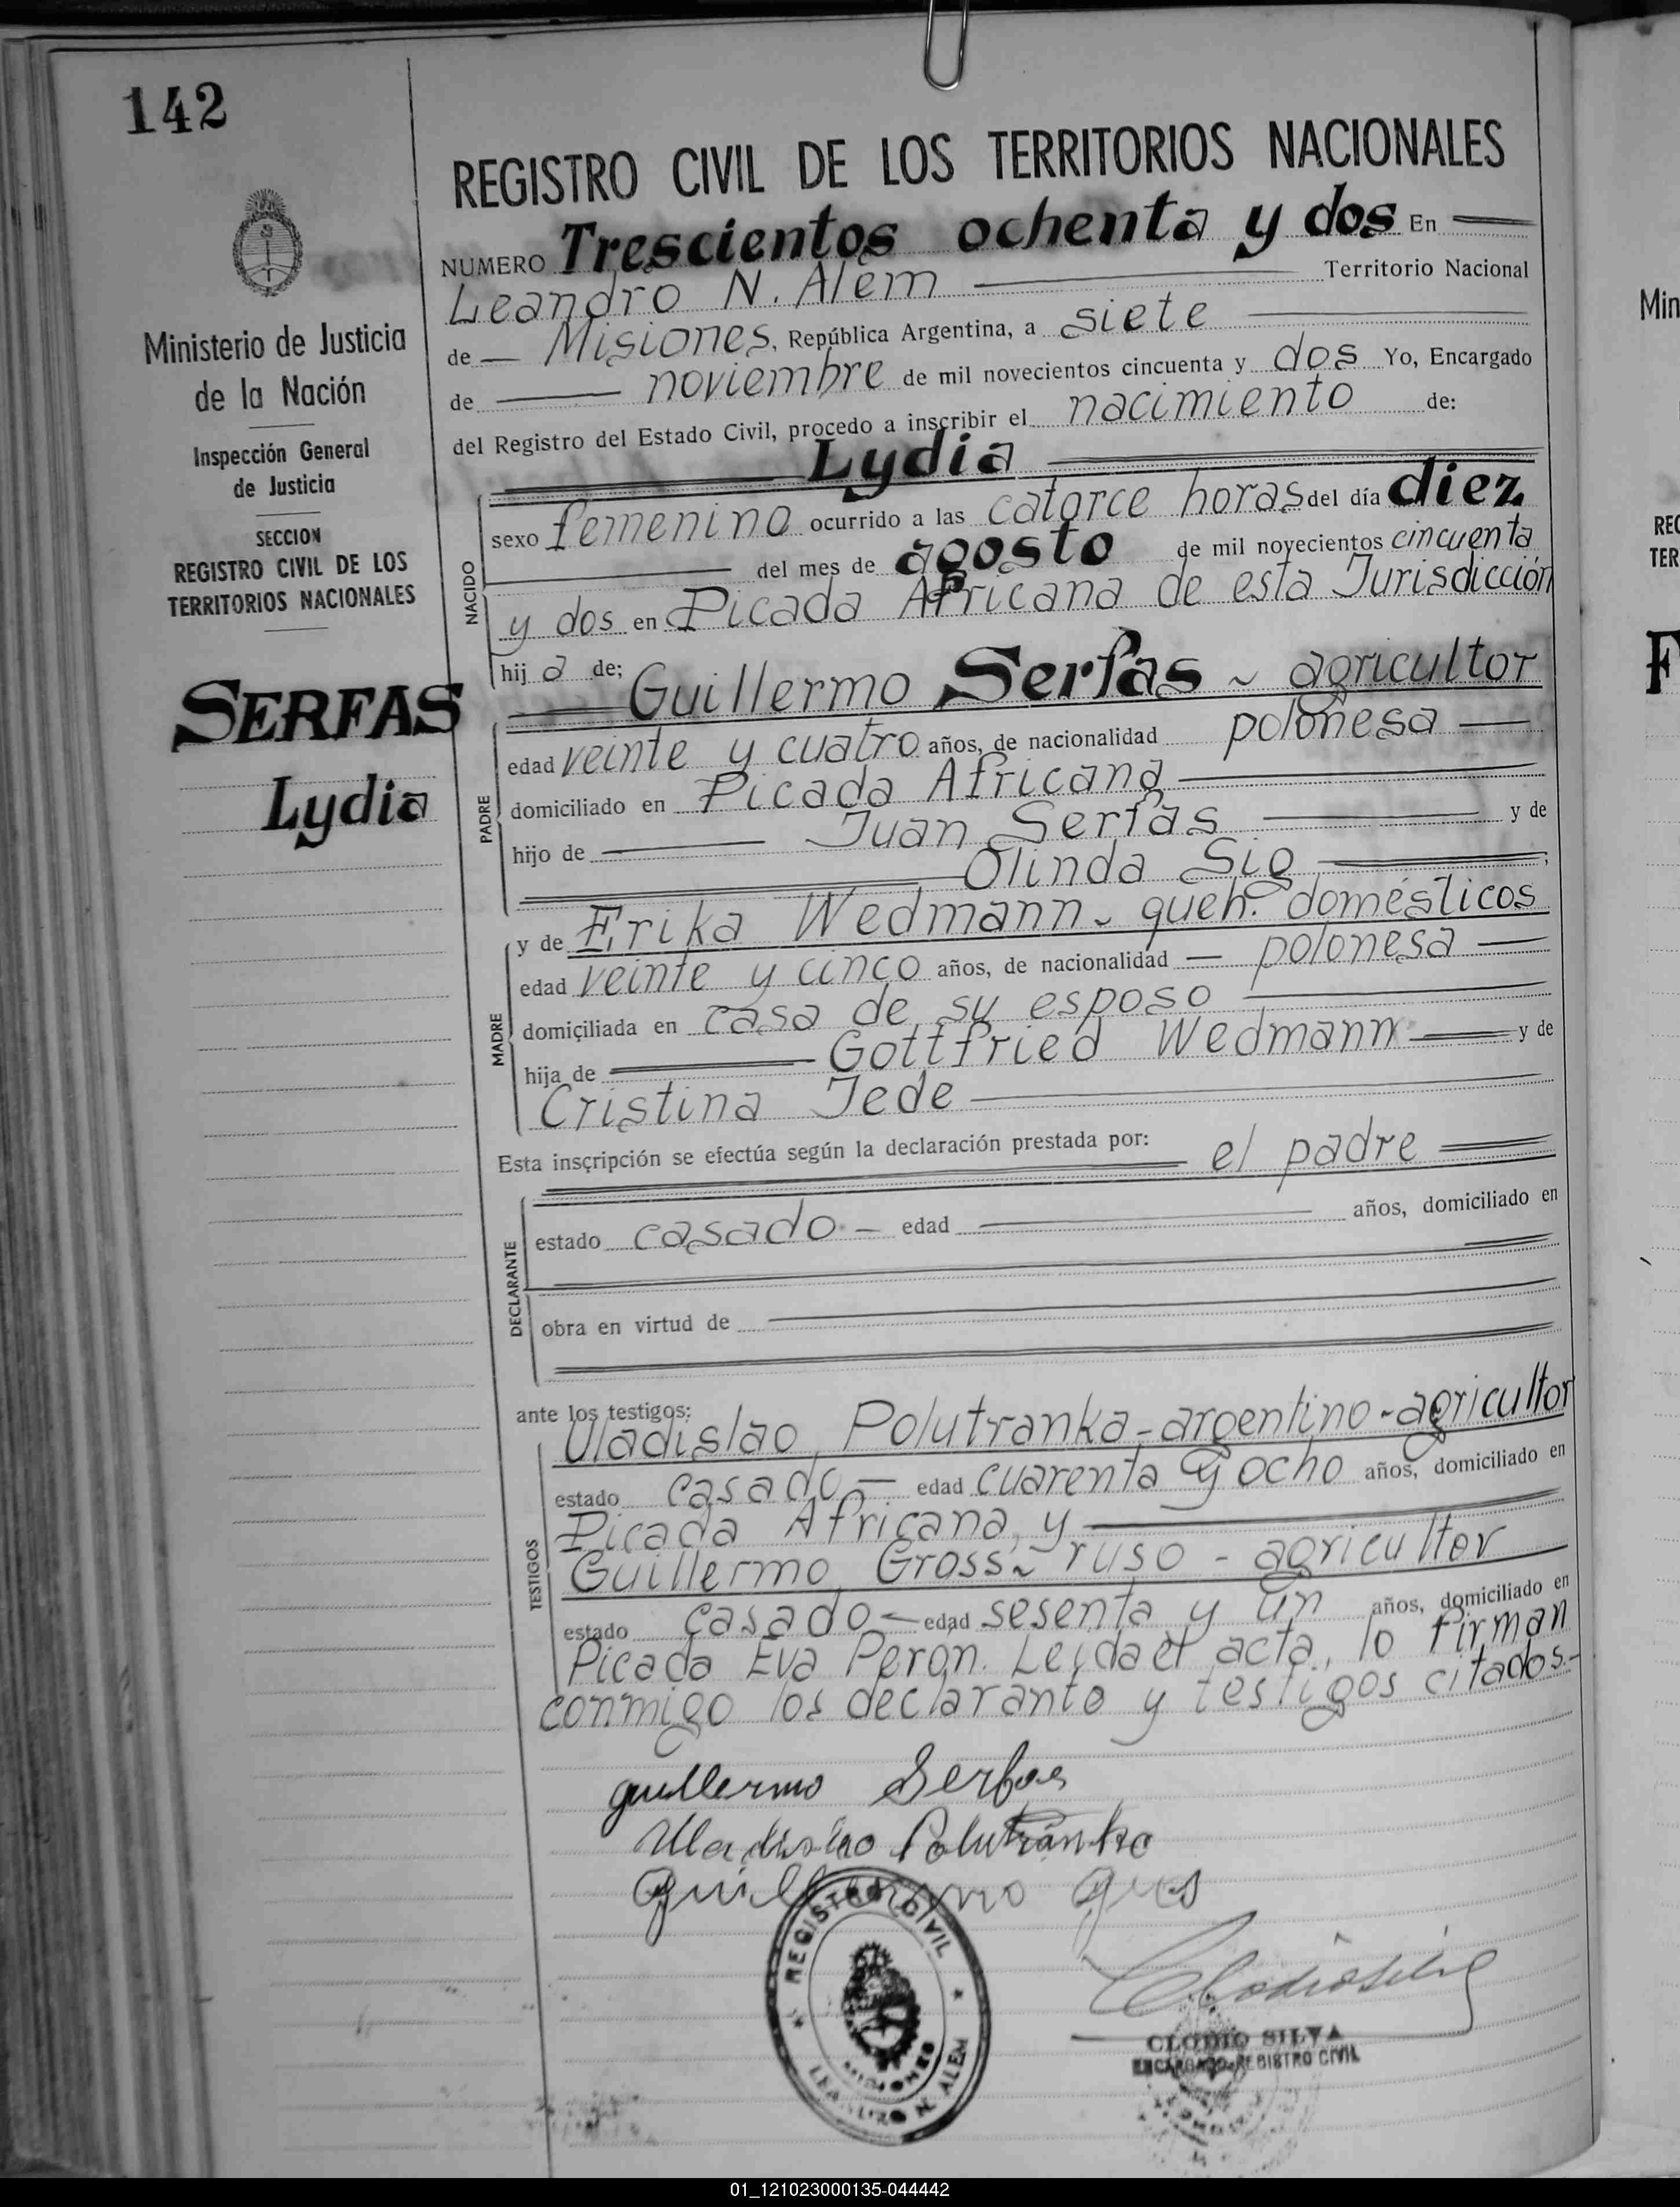 142
Ministerio de Justicia
de la Nación
Inspección General
de Justicia
SECCION
REGISTRO CIVIL DE LOS
TERRITORIOS NACIONALES
SERFAS
Lydia
REGISTRO CIVIL DE LOS TERRITORIOS NACIONALES
NUMERO Trescientos ochenta y dos En
Leandro N. Alem Territorio Nacional
de Misiones, República Argentina, a siete
de noviembre de mil novecientos cincuenta y dos Yo, Encargado
del Registro del Estado Civil, procedo a inscribir el nacimiento de:
Lydia
NACIDO
sexo femenino ocurrido a las catorce horas del día diez
del mes de agosto de mil novecientos cincuenta
y dos en Picada Africana de esta Jurisdicción
hij a de;
Guillermo Serfas ~ agricultor
PADRE
edad veinte y cuatro años, de nacionalidad polonesa
domiciliado en Picada Africana
hijo de Juan Serfas y de
Olinda Sig
MADRE
y de Erika Wedmann ~ queh. domésticos
edad veinte y cinco años, de nacionalidad polonesa
domiciliada en casa de su esposo
hija de Gottfried Wedmann y de
Cristina Jede
Esta inscripción se efectúa según la declaración prestada por: el padre
DECLARANTE
estado casado edad años, domiciliado en
obra en virtud de
ante los testigos:
TESTIGOS
Uladislao Polutranka - argentino - agricultor
estado casado edad cuarenta y ocho años, domiciliado en
Picada Africana, y
Guillermo Gross ~ ruso - agricultor
estado casado edad sesenta y un años, domiciliado en
Picada Eva Peron. Leida el acta, lo firman
conmigo los declarante y testigos citados.-
guillermo Serfas
Uladislao Polutranka
Guillermo
REGISTRO CIVIL
MISIONES
LEANDRO N. ALEM
CLODIO SILVA
ENCARGADO REGISTRO CIVIL
Min
REG
TER
F
01_121023000135-044442